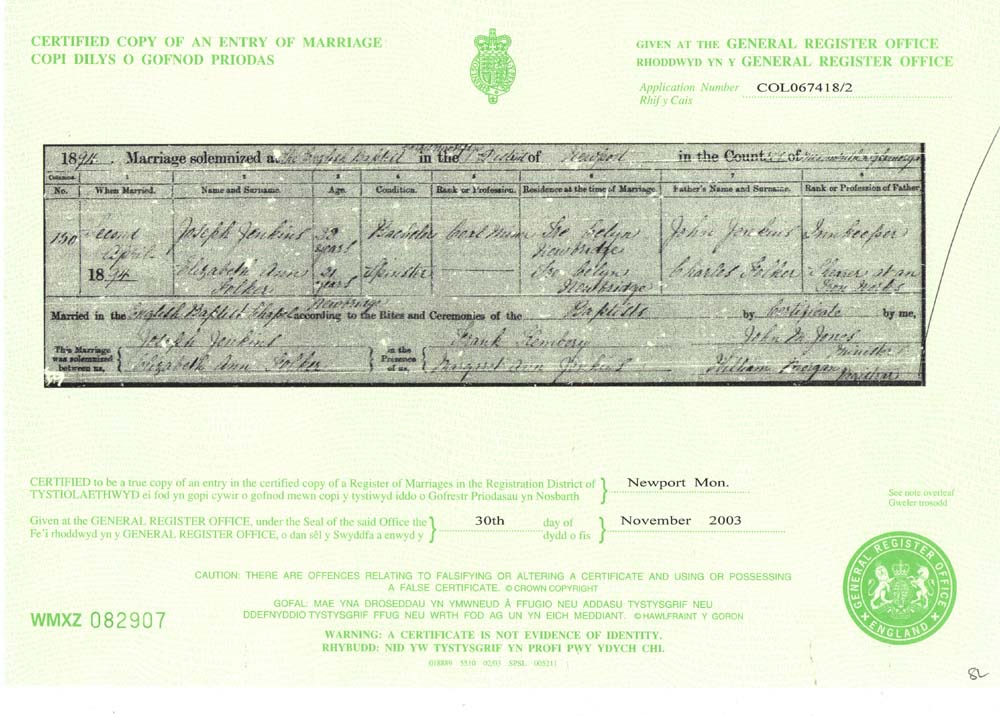 CERTIFIED COPY OF AN ENTRY OF MARRIAGE
COPI DILYS O GOFNOD PRIODAS
GIVEN AT THE GENERAL REGISTER OFFICE
RHODDWYD YN Y GENERAL REGISTER OFFICE
Application Number COL067418/2
Rhif y Cais
1894. Marriage solemnized at The English Baptist in the District of Newport in the Count of
Columns 1 2 3 4 5 6 7 8
No. When Married. Name and Surname. Age. Condition. Rank or Profession. Residence at the time of Marriage. Father's Name and Surname. Rank or Profession of Father.
150 Second Joseph Jenkins 32 Bachelor Coal Miner Tre Celyn John Jenkins Innkeeper
April years Newbridge
1894 Elizabeth Ann 21 Spinster Tre Celyn Charles Folker at an
Folker years Newbridge Iron Works
Newbridge
Married in the English Baptist Chapel according to the Rites and Ceremonies of the Baptists by Certificate by me,
Joseph Jenkins Frank John M Jones
This Marriage was solemnized between us, Elizabeth Ann Folker in the Presence of us, Margaret Ann Jenkins Minister
William Morgan Registrar
CERTIFIED to be a true copy of an entry in the certified copy of a Register of Marriages in the Registration District of Newport Mon.
TYSTIOLAETHWYD ei fod yn gopi cywir o gofnod mewn copi y tystiwyd iddo o Gofrestr Priodasau yn Nosbarth
See note overleaf
Gweler trosodd
Given at the GENERAL REGISTER OFFICE, under the Seal of the said Office the 30th day of November 2003
Fe'i rhoddwyd yn y GENERAL REGISTER OFFICE, o dan sêl y Swyddfa a enwyd y dydd o fis
GENERAL REGISTER OFFICE
ENGLAND
CAUTION: THERE ARE OFFENCES RELATING TO FALSIFYING OR ALTERING A CERTIFICATE AND USING OR POSSESSING
A FALSE CERTIFICATE. © CROWN COPYRIGHT
GOFAL: MAE YNA DROSEDDAU YN YMWNEUD Â FFUGIO NEU ADDASU TYSTYSGRIF NEU
DDEFNYDDIO TYSTYSGRIF FFUG NEU WRTH FOD AG UN YN EICH MEDDIANT. © HAWLFRAINT Y GORON
WMXZ 082907
WARNING: A CERTIFICATE IS NOT EVIDENCE OF IDENTITY.
RHYBUDD: NID YW TYSTYSGRIF YN PROFI PWY YDYCH CHI.
018889 5510 02/03 SPSL 005211